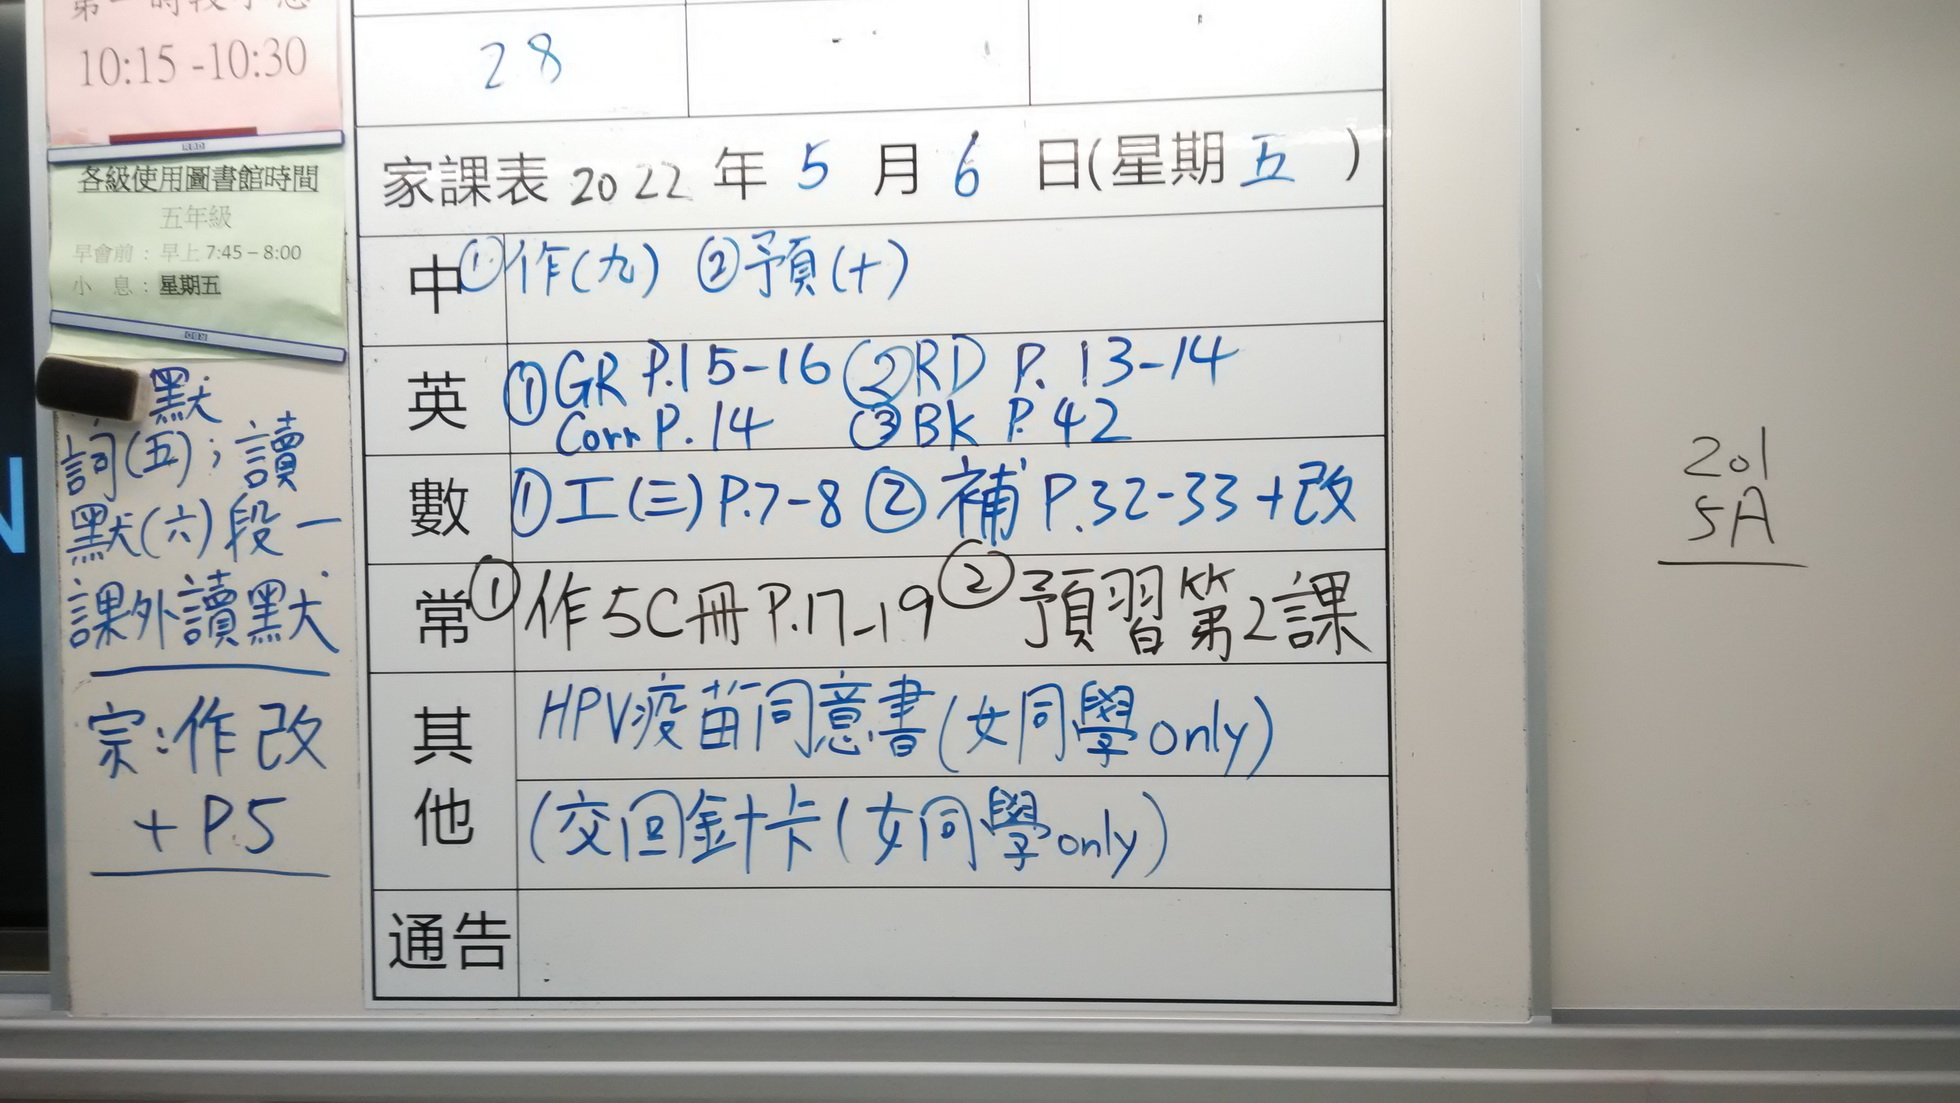 10:15 -10:30
各級使用圖書館時間
五年級
早會前：早上 7:45 – 8:00
小 息：星期五
默
詞(五)；讀
默(六)段一
課外讀默
宗:作改
+ P.5
28
家課表 2022 年 5 月 6 日(星期 五 )
中 ①作(九) ②預(十)
英 ①GR P.15-16 ②RD P. 13-14
Corr P.14 ③BK P.42
數 ①工(三) P.7-8 ② 補 P.32-33 + 改
常 ① 作5C冊 P.17-19 ② 預習第2課
其他 HPV疫苗同意書(女同學only)
(交回針卡(女同學only)
通告
201
5A